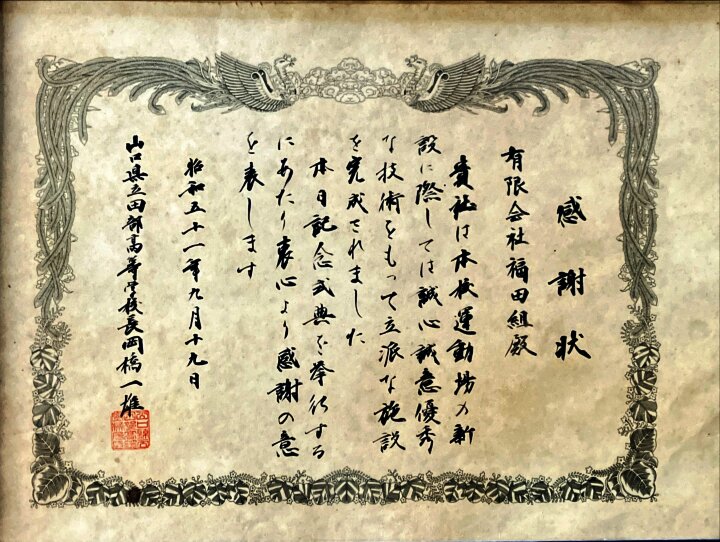 感謝状
有限会社福田組殿
貴社は本校運動場の新
設に際しては誠心誠意優秀
な技術をもって立派な施設
を完成されました
本日記念式典を挙行する
にあたり衷心より感謝の意
を表します
昭和五十一年九月十九日
山口県立田部高等学校長岡橋一雄